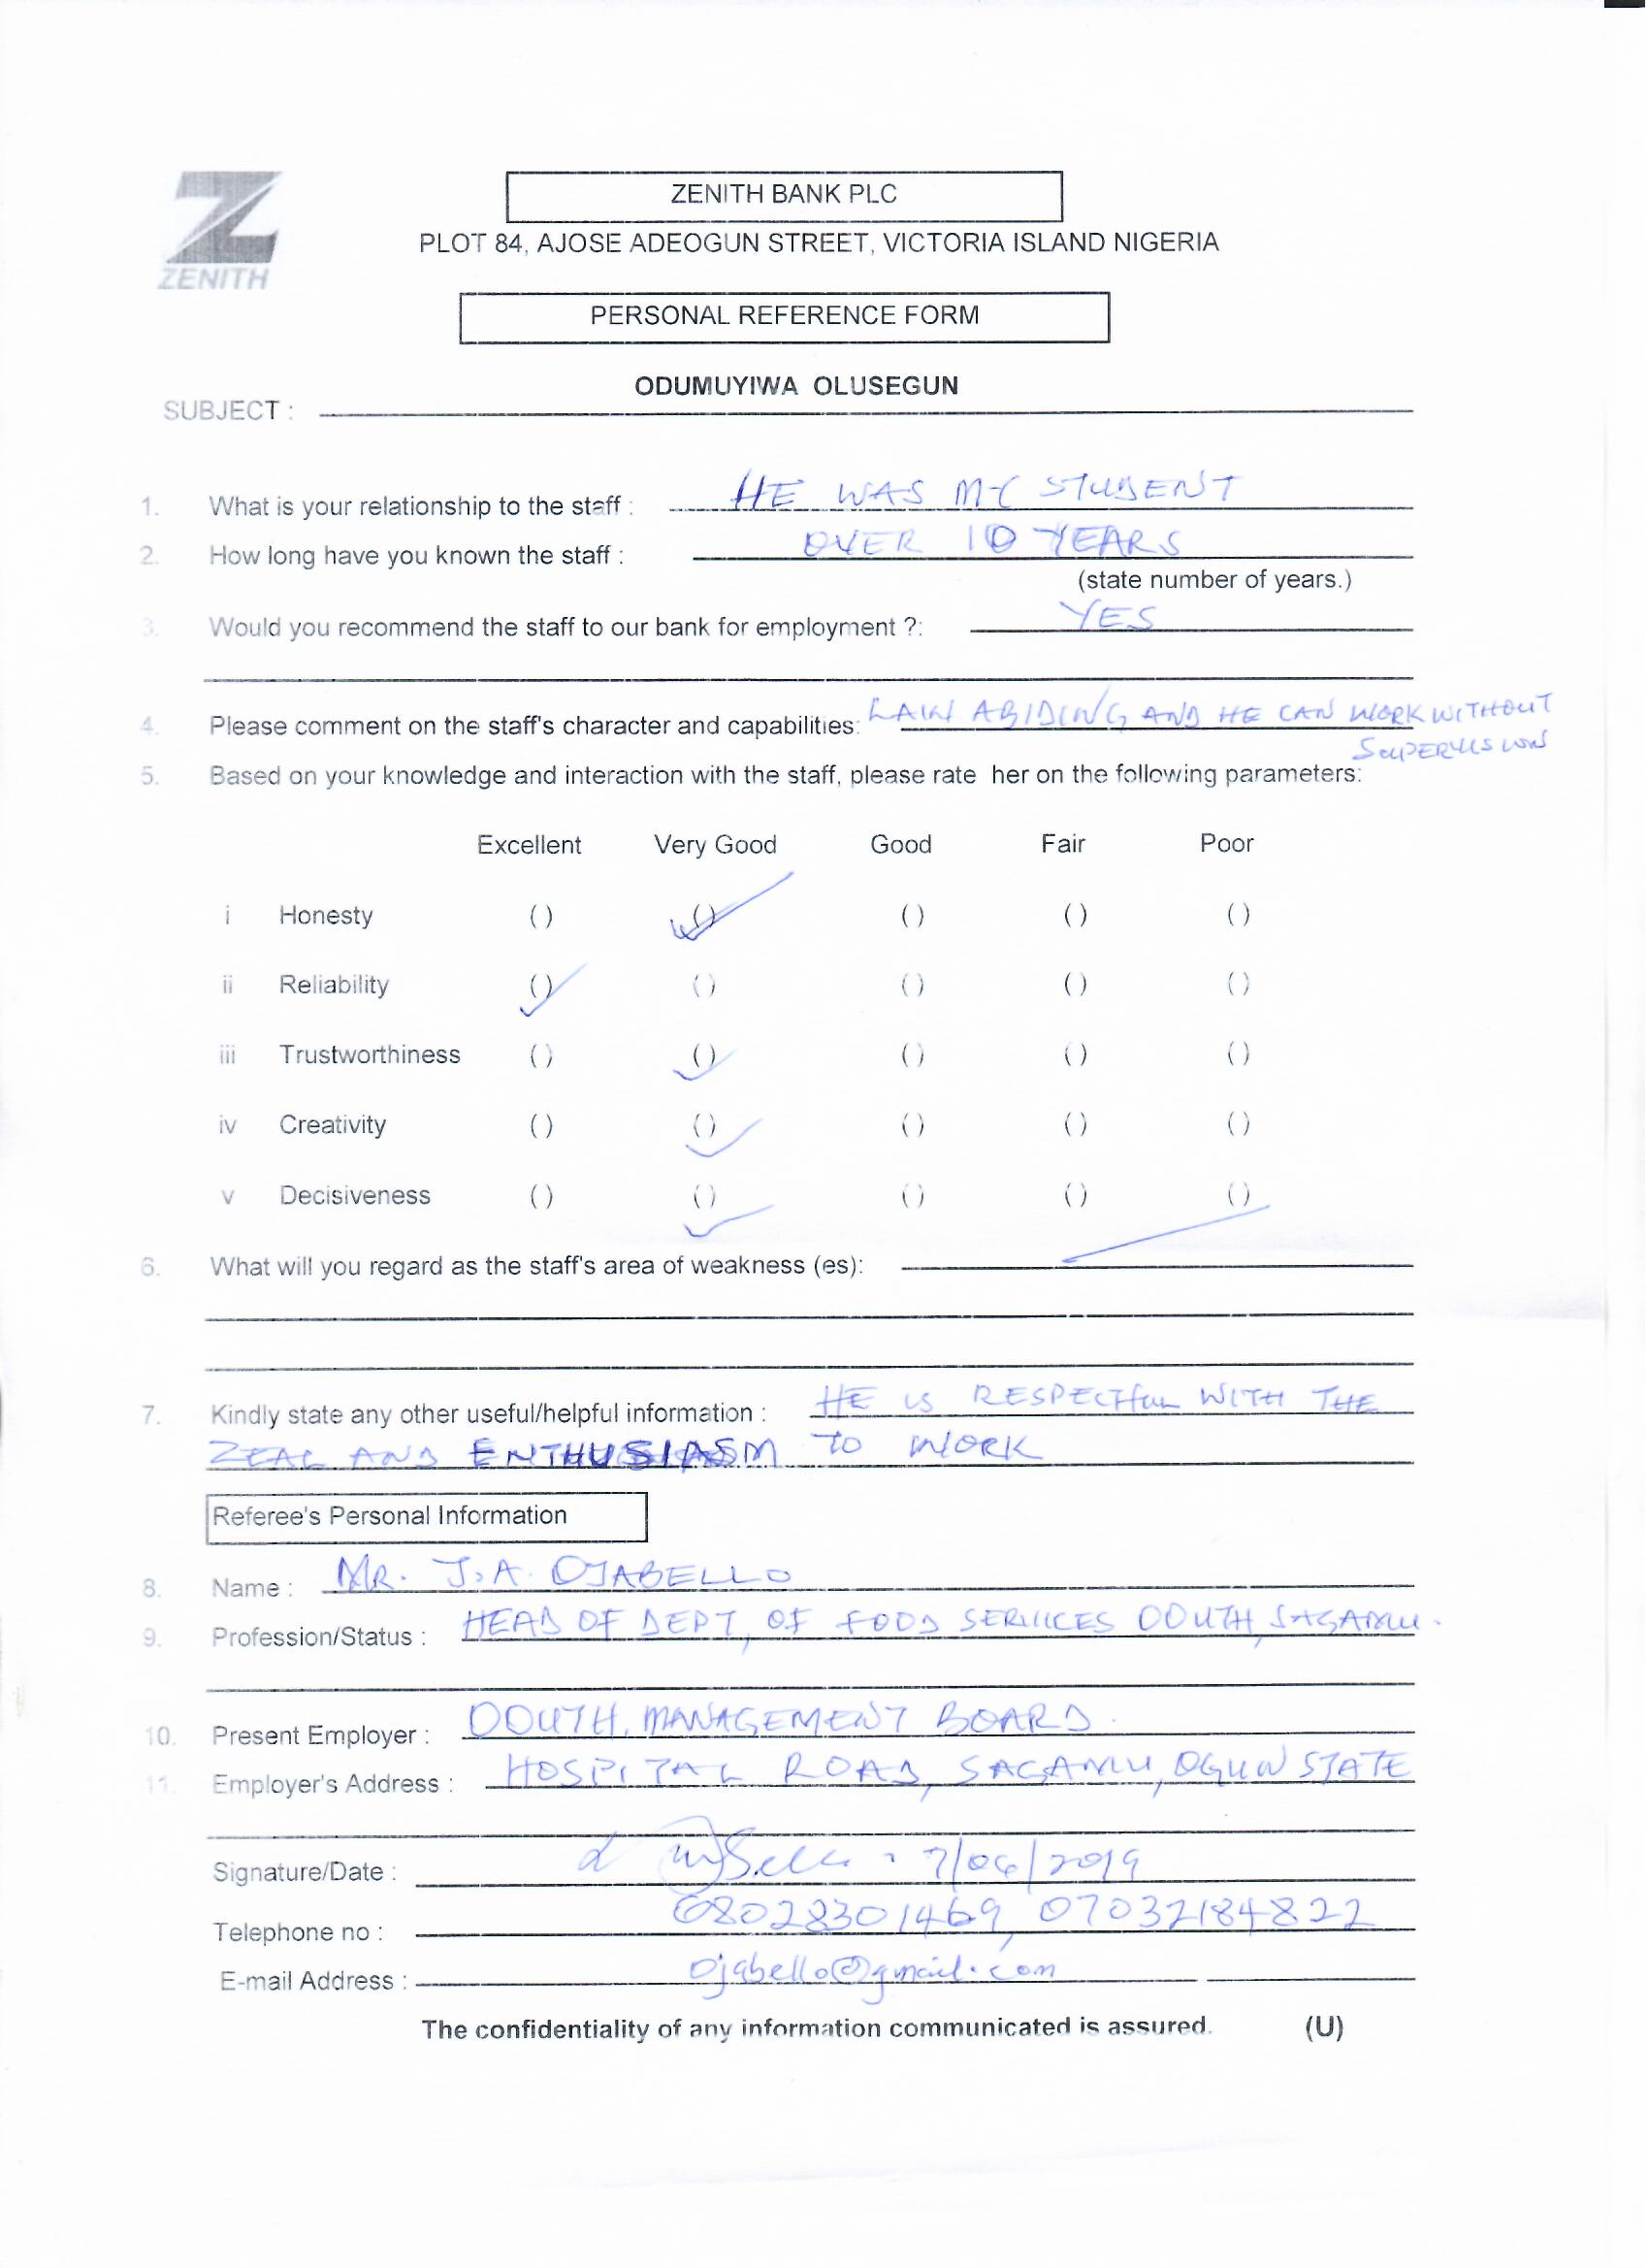 ZENITH
ZENITH BANK PLC
PLOT 84, AJOSE ADEOGUN STREET, VICTORIA ISLAND NIGERIA
PERSONAL REFERENCE FORM
SUBJECT : ODUMUYIWA OLUSEGUN
1. What is your relationship to the staff : HE WAS MY STUDENT
2. How long have you known the staff : OVER 10 YEARS
(state number of years.)
3. Would you recommend the staff to our bank for employment ?: YES
4. Please comment on the staff's character and capabilities: LAW ABIDING AND HE CAN WORK WITHOUT
SUPERVISION
5. Based on your knowledge and interaction with the staff, please rate her on the following parameters:
Excellent Very Good Good Fair Poor
i Honesty () (✓) () () ()
ii Reliability (✓) () () () ()
iii Trustworthiness () (✓) () () ()
iv Creativity () (✓) () () ()
v Decisiveness () (✓) () () ()
6. What will you regard as the staff's area of weakness (es):
7. Kindly state any other useful/helpful information : HE IS RESPECTful WITH THE
ZEAL AND ENTHUSIASM TO WORK
Referee's Personal Information
8. Name : MR. J.A. OJABELLO
9. Profession/Status : HEAD OF DEPT, OF FOOD SERVICES OOUTH, SAGAMU.
10. Present Employer : OOUTH, MANAGEMENT BOARD.
11. Employer's Address : HOSPITAL ROAD, SAGAMU, OGUN STATE
Signature/Date : 7/06/2019
Telephone no : 08028301469, 07032184822
E-mail Address : Ojabello@gmail.com
The confidentiality of any information communicated is assured. (U)